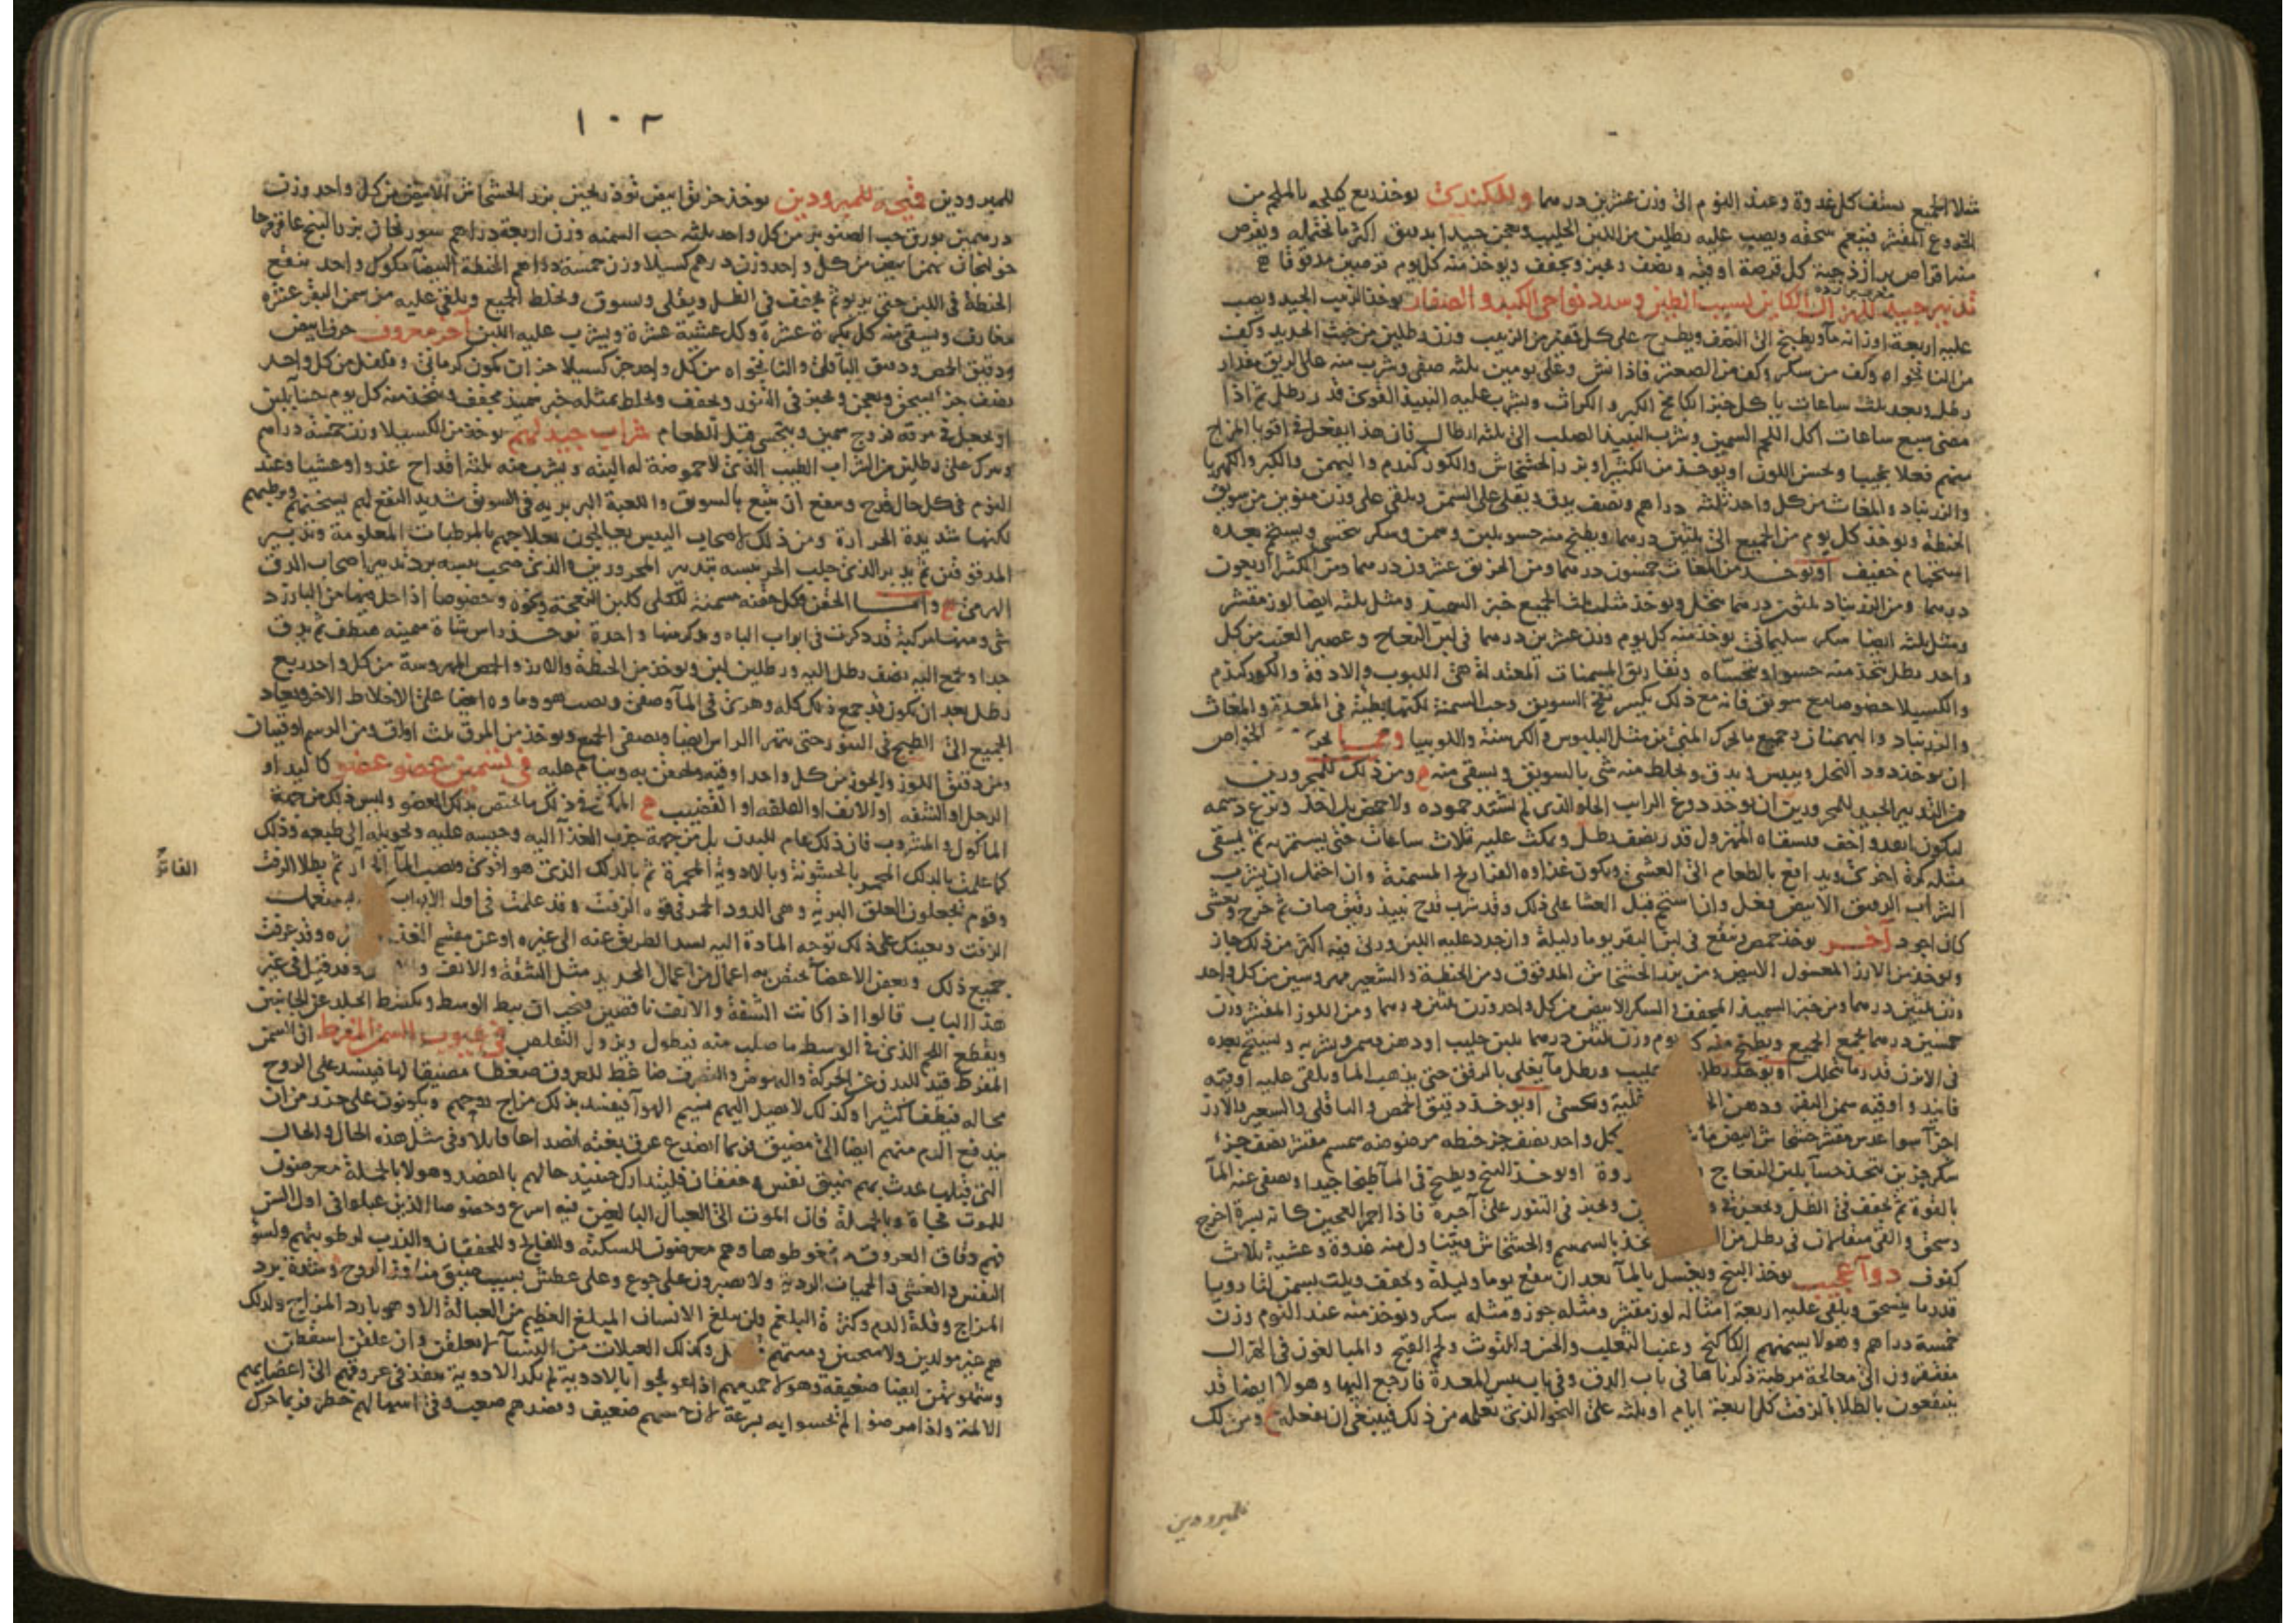 مثلا الجميع يستف كل غدوة وعند النوم الى وزن عشرين درهما وللكندى يوخذ ربع كيلجه بالملجم من
الخروع المقشر فينعم سحقه ويصب عليه رطلين من اللبن الحليب ويعجن جيدا بدقيق اكثر ما تحتمله ويقرص
منه اقراص كل قرصة اوقية ونصف وتخبز وتجفف ويوخذ منه كل يوم قرصين مدقوقا
تدبير جيد للهزال الكاين لسبب الطين وسدد نواحى الكبد والصفار يوخذ الزبيب الجيد ويصب
عليه اربعة اوزانه ما ويطبخ الى النصف ويطرح على كل من الزبيب وزن رطلين من خبث الحديد وكف
من النانخواه وكف من سكر وكف من الصعتر فاذا نش وغلى يومين ثلثه صفى وشرب منه على الريق مقدار
رطل وبعد ثلث ساعات ياكل خبز الكامخ الكبر والكراث ويشرب عليه النبيذ القوى قدر رطل ثم اذا
مضى سبع ساعات اكل اللحم السمين وشرب النبيذ الصلب الى ثلثه ارطال فان هذا يفعل فى اقويا المزاج
منهم فعلا عجيبا ويحسن اللون او يوخذ من الكثيرا وبزر الخشخاش والكور كندم والبهمن والكبر والكهربا
والزرنباد والمغاث من كل واحد ثلثه دراهم ونصف يدق ويغلى على السمن ويلقى على وزن منوين من سويق
الحنطة ويوخذ كل يوم من الجميع الى ثلثين درهما ويطبخ منه حسو بلبن وسمن وسكر يتحسى ويستحم بعده
استحمام خفيف او يوخذ من المغاث خمسون درهما ومن الخربق عشرون درهما ومن الكثيرا اربعون
درهما ومن الزرنباد ثلثون درهما ينخل ويوخذ مثل ثلث الجميع خبز السميد ومثل ثلثه ايضا لوز مقشر
ومثل ثلثه ايضا سكر سليمانى يوخذ منه كل يوم وزن عشرين درهما فى لبن النعاج وعصير العنب من كل
واحد رطل يتخذ منه حسوا ويتحساه وتفاريق المسمنات المعتدلة هى الحبوب والادقة والكور كندم
والكسيلا خصوصا مع سويق فانه مع ذلك يكسر نفخ السويق وحب السمنة لكنها بطيئة فى المعدة والمغاث
والزرنباد والبهمنان وجميع ما يحرك المنى من مثل البلبوس والكرسنة واللوبيا ومما الخواص
ان يوخذ دود النحل وييبس ويدق ويخلط منه شى بالسويق ويسقى منه ومن ذلك للمحرورين
من التدبير الجيد للمحرورين ان يوخذ دوغ الرايب الحلو الذى لم تشتد حموضه ولا حمض بل اخذ ونزع دسمه
ليكون ابعد واخف فيسقاه المهزول قدر نصف رطل ويمكث عليه ثلاث ساعات حتى يستمريه ثم يسقى
مثله كرة اخرى ويدافع بالطعام الى العشى ويكون غذاوه الفراريج المسمنة وان احتمل ان يشرب
الشراب الرقيق الابيض فعل وان استحم قبل العشا على ذلك وقد شرب قدح نبيذ رقيق صاف ثم خرج وتعشى
كان اجود آخر يوخذ حمص وينقع فى لبن البقر يوما وليلة وان جدد عليه اللبن وربى فيه اكثر من ذلك جاز
ويوخذ من الارز المغسول الابيض ومن بزر الخشخاش المدقوق ومن الحنطة والشعير مهروسين من كل واحد
وزن ثلثين درهما ومن خبز السميد المجفف والسكر الابيض من كل واحد وزن ثلثين درهما ومن اللوز المقشر وزن
خمسين درهما يجمع الجميع ويطبخ منه كل يوم وزن ثلثين درهما بلبن حليب او دهن بسمن ويشربه ويستحم بعده
فى الابزن قدر ما يتحلل او يوخذ رطل حليب ورطل ما يغلى بالرفق حتى يذهب الما ويلقى عليه اوقية
فانيذ واوقيه سمن البقر ودهن ويحسى او يوخذ دقيق الحمص والباقلى والشعير والارز
اجزا سوا عدس مقشر خشخاش ابيض كل واحد نصف جز حنطه مرضوضه سمسم مقشر نصف جز
سكر جزين يتخذ حسا بلبن النعاج او يوخذ البنج ويطبخ فى الما طبخا جيدا ويصفى عنه الما
بالقوة ثم يجفف فى الظل ويعجن ويخبز فى التنور على آجرة فاذا احمر العجين اخرج
وسحق والقى فى رطل من بالسمسم والخشخاش فيتناول منه غدوة وعشية ثلاث
كفوف دوآ عجيب يوخذ البنج ويغسل بالما بعد ان ينقع يوما وليلة ويجفف ويلت بسمن
قدر ما يسحق ويلقى عليه اربعة امثاله لوز مقشر ومثله جوز ومثله سكر ويوخذ منه عند النوم وزن
خمسة دراهم وهولا يسمنهم الكاكنج وعنب الثعلب والخس والتوت ولحم القبج والمبالغون فى الهزال
مفتقرون الى معالجة مرطبة ذكرناها فى باب الدق وفى باب يبس المعدة فارجع اليها وهولا ايضا قد
ينتفعون بالطلا بالزفت كل اربعة ايام او ثلثه على النحو الذى تعلمه من ذلك فينبغى ان تفعله ومن ذلك
للمبرودين
١٠٢
للمبرودين فتيحه للمبرودين يوخذ خربق ابيض تودرنجين بزر الخشخاش الابيض من كل واحد وزن
درهمين بورق حب الصنوبر من كل واحد ثلثه حب السمنه وزن اربعة دراهم سورنجان بزر البنج عاقرقرحا
خولنجان بهمن ابيض من كل واحد وزن درهم كسيلا وزن خمسة دراهم الحنطة البيضا مكوك واحد ينقع
الحنطة فى اللبن حتى يربو ثم يجفف فى الظل ويغلى وتسوق ويخلط الجميع ويلقى عليه من سمن البقر عشرة
مغارف ويسقى منه كل بكرة عشرة وكل عشية عشرة ويشرب عليه اللبن آخر معروف حرف ابيض
ودقيق الحمص ودقيق الباقلى والنانخواه من كل واحد جز كسيلا جزان كمون كرمانى وفلفل من كل واحد
نصف جز يسحق ويعجن ويخبز فى التنور ويجفف ويخلط بمثله خبز سميد مجفف ويتخذ منه كل يوم حسا بلبن
او يجعل فى مرقة فروج سمين ويتحسى قبل الطعام شراب جيد لهم يوخذ من الكسيلا وزن خمسة دراهم
ويترك على رطلين من الشراب الطيب الذى لا حموضة له البته ويشرب منه ثلثة اقداح غدوا وعشيا وعند
النوم فى كل حال قدح وينفع ان يتبع بالسويق واللعبة البربريه فى السويق شديد النفع لهم يسخنهم ويرطبهم
لكنها شديدة الحرارة ومن ذلك لاصحاب اليبس يعالجون بعلاجهم بالمرطبات المعلومة وتدبير
المدقوقين ثم يدبر الذى جلب الحر يبسه بتدبير المحرورين والذى صحب يبسه برد بتدبير اصحاب الدق
الهرمى واما الحقن فكل حقنه مسمنة للكلى كلبن النعجة ونحوه وخصوصا اذا حل فيها من البارزد
شى ومنها مركبة قد ذكرت فى ابواب الباه ونذكر منها واحدة يوخذ راس شاة سمينه فينظف ثم يدق
جدا ويجمع اليه نصف رطل اليه ورطلين لبن ويوخذ من الحنطة والارز والحمص المهروسة من كل واحد ربع
رطل بعد ان يكون قد جمع ذلك كله وهرى فى الما وصفى ويصب هو وماوه ايضا على الاخلاط الاخر ويعاد
الجميع الى الطبخ فى التنور حتى يتهرا الراس ايضا ويصفى الجميع ويوخذ من المرق ثلث اواق ومن الدسم اوقيتان
ومن دقيق اللوز والجوز من كل واحد اوقيه ويحتقن به وينام عليه فى تسمين عضو عضو كاليد او
الرجل او الشفه او الانف او القضيب الممكن فى ذلك ما يختص بذلك العضو وليس ذلك من جهة
الماكول والمشروب فان ذلك عام للبدن بل من جهة جذب الغذا اليه وحبسه عليه وتحويله الى طبيعه وذلك
كما علمت بالدلك المحمر بالخشونة وبالادوية المحمرة ثم بالدلك الذى هو اقوى وبصب الما ثم يطلا الزفت
الفاتر
وقوم يجعلون العلق البريه وهى الدود الحمر فى قوه الزفت وقد علمت فى اول الابواب
الزفت ويعينك على ذلك توجه المادة اليه بسد الطريق عنه الى غيره او عن مقسم الغذا وقد عرفت
جميع ذلك وبعض الاعضا يختص به اعمال من اعمال الحديد مثل الشفة والانف وقد قيل فى غير
هذا الباب قالوا اذا كانت الشفة والانف ناقصين فيجب ان يبط الوسط ويكشط الجلد عن الجانبين
ويقطع اللحم الذى فى الوسط ما صلب منه فيطول ويزول التقلص فى عيوب السمن المفرط ان السمن
المفرط قيد للبدن عن الحركة والنهوض والتصرف ضاغط للعروق ضغطا مضيقا لها فينسد على الروح
مجاله فيطفا كثيرا وكذلك لا يصل اليهم نسيم الهوا فيفسد بذلك مزاج روحهم ويكونون على حذر من ان
يندفع الدم منهم ايضا الى مضيق فربما انصدع عرق بغتة انصداعا قاتلا وفى مثل هذه الحال والحال
التى قبلها يحدث بهم ضيق نفس وخفقان فليتدارك حينيذ حالهم بالفصد وهولا بالجملة معرضون
للموت فجاة وبالجملة فان الموت الى العبال البالغين فيه اسرع وخصوصا الذين عبلوا فى اول السن
فهم دقاق العروق مضغوطوها وهم معرضون للسكتة والفالج وللخفقان والذرب لرطوبتهم ولسو
النفس والغشى والحميات الردية ولا يصبرون على جوع وعلى عطش بسبب ضيق منافذ الروح وشدة برد
المزاج وقلة الدم وكثرة البلغم ولن يبلغ الانسان المبلغ العظيم من العبالة الا وهو بارد المزاج ولذلك
هم غير مولدين ولا منجبين ومنيهم وكذلك العبلات من النسا لا يعلقن وان علقن اسقطن
وشهوتهن ايضا ضعيفة وهولا جميعهم اذا عولجوا بالادوية لم يكد الادوية ينفذ فى عروقهم الى اعضايهم
الالمة واذا مرضوا لم يحسوا به بسرعة لان حسهم ضعيف وفصدهم صعب وفى اسهالهم خطر فربما حرك